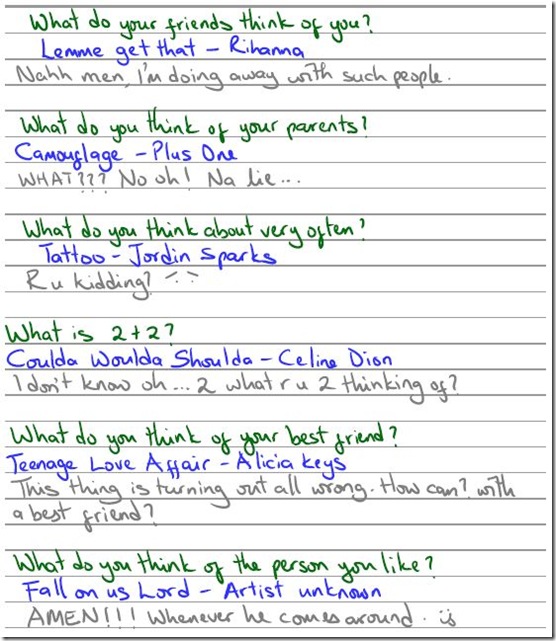 What do your friends think of you?
Lemme get that – Rihanna
Nahh men, I'm doing away with such people.
What do you think of your parents?
Camouflage – Plus One
WHAT??? No oh! Na lie...
What do you think about very often?
Tattoo – Jordin Sparks
R u kidding?
What is 2+2?
Coulda Woulda Shoulda – Celine Dion
I don't know oh... 2 what r u 2 thinking of?
What do you think of your best friend?
Teenage Love Affair – Alicia Keys
This thing is turning out all wrong. How can? with
a best friend?
What do you think of the person you like?
Fall on us Lord – Artist unknown
AMEN!!! Whenever he comes around.